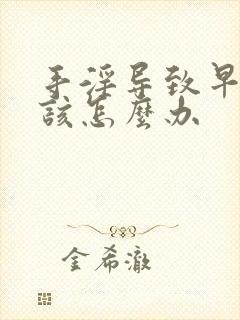 手淫导致早
该怎麽办
金希澈